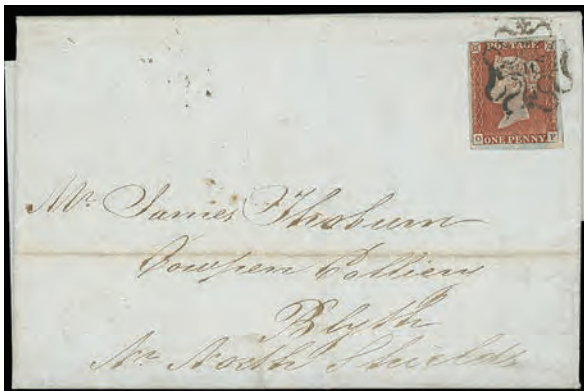 POSTAGE
ONE PENNY
Mr. James Thoburn
Cowpen Colliery
Blyth
Nr. North Shields